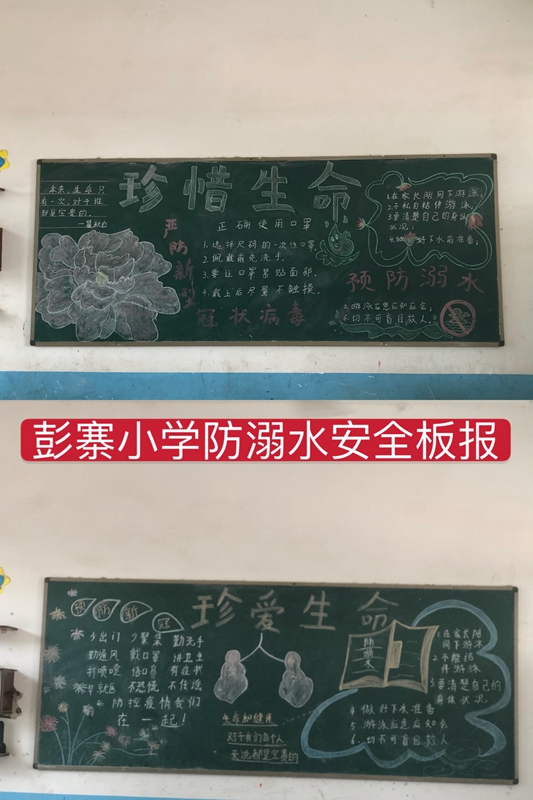 珍惜生命
本来,生命只
有一次,对于谁
都是宝贵的。
严防新型
冠状病毒
正确使用口罩
1.选择尺码的一次性口罩
2.佩戴前先洗手。
3.要让口罩紧贴面部。
4.戴上后尽量不触摸。
1.在家长陪同下游泳
2.不私自结伴游泳
3.要清楚自己的身体
状况;
4.做好下水前准备;
预防溺水
5.游泳应急应知应会;
6.切不可盲目救人。
彭寨小学防溺水安全板报
预防新冠
珍爱生命
少出门 少聚集 勤洗手
勤通风 戴口罩 讲卫生
打喷嚏 捂口鼻 有症状
早就医 不恐慌 不传谣
防控疫情我们
在一起!
生命和健康
对于我们每个人
来说都是宝贵的
防溺水
1.在家长陪
同下游泳
2.不能结
伴游泳
3.要清楚自己的
身体状况
4.做好下水准备
5.游泳应急应知会
6.切不可盲目救人